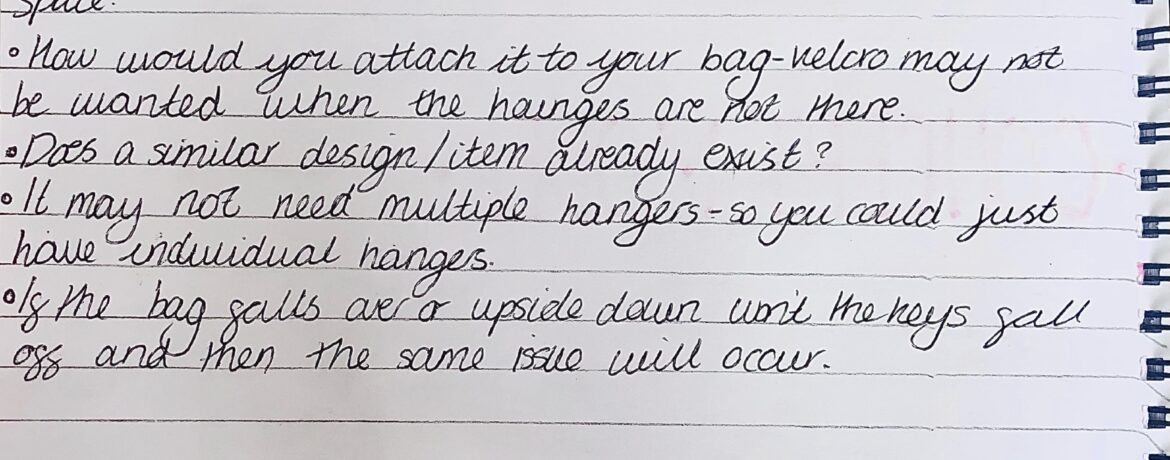 space.
• How would you attach it to your bag-velcro may not
be wanted when the haunges are not there.
• Does a similar design/item already exist?
• It may not need multiple hangers-so you could just
have individual hanges.
• If the bag falls over or upside down won't the keys fall
off and then the same issue will occur.